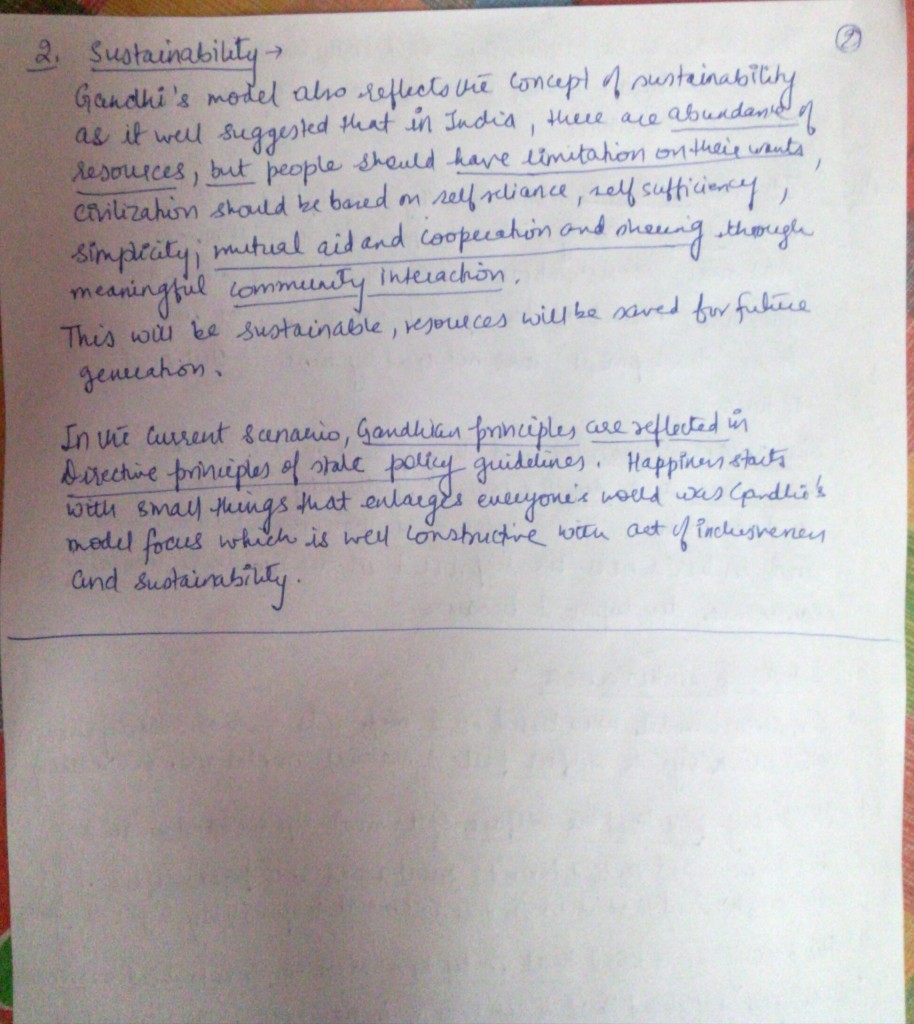 2
2. Sustainability →
Gandhi's model also reflects the concept of sustainability
as it well suggested that in India, there are abundance of
resources, but people should have limitation on their wants,
civilization should be based on self reliance, self sufficiency,
simplicity, mutual aid and cooperation and sharing through
meaningful community interaction.
This will be sustainable, resources will be saved for future
generation.
In the current scenario, Gandhian principles are reflected in
Directive principles of state policy guidelines. Happiness starts
with small things that enlarges everyone's world was Gandhi's
model focus which is well constructive with act of inclusiveness
and sustainability.